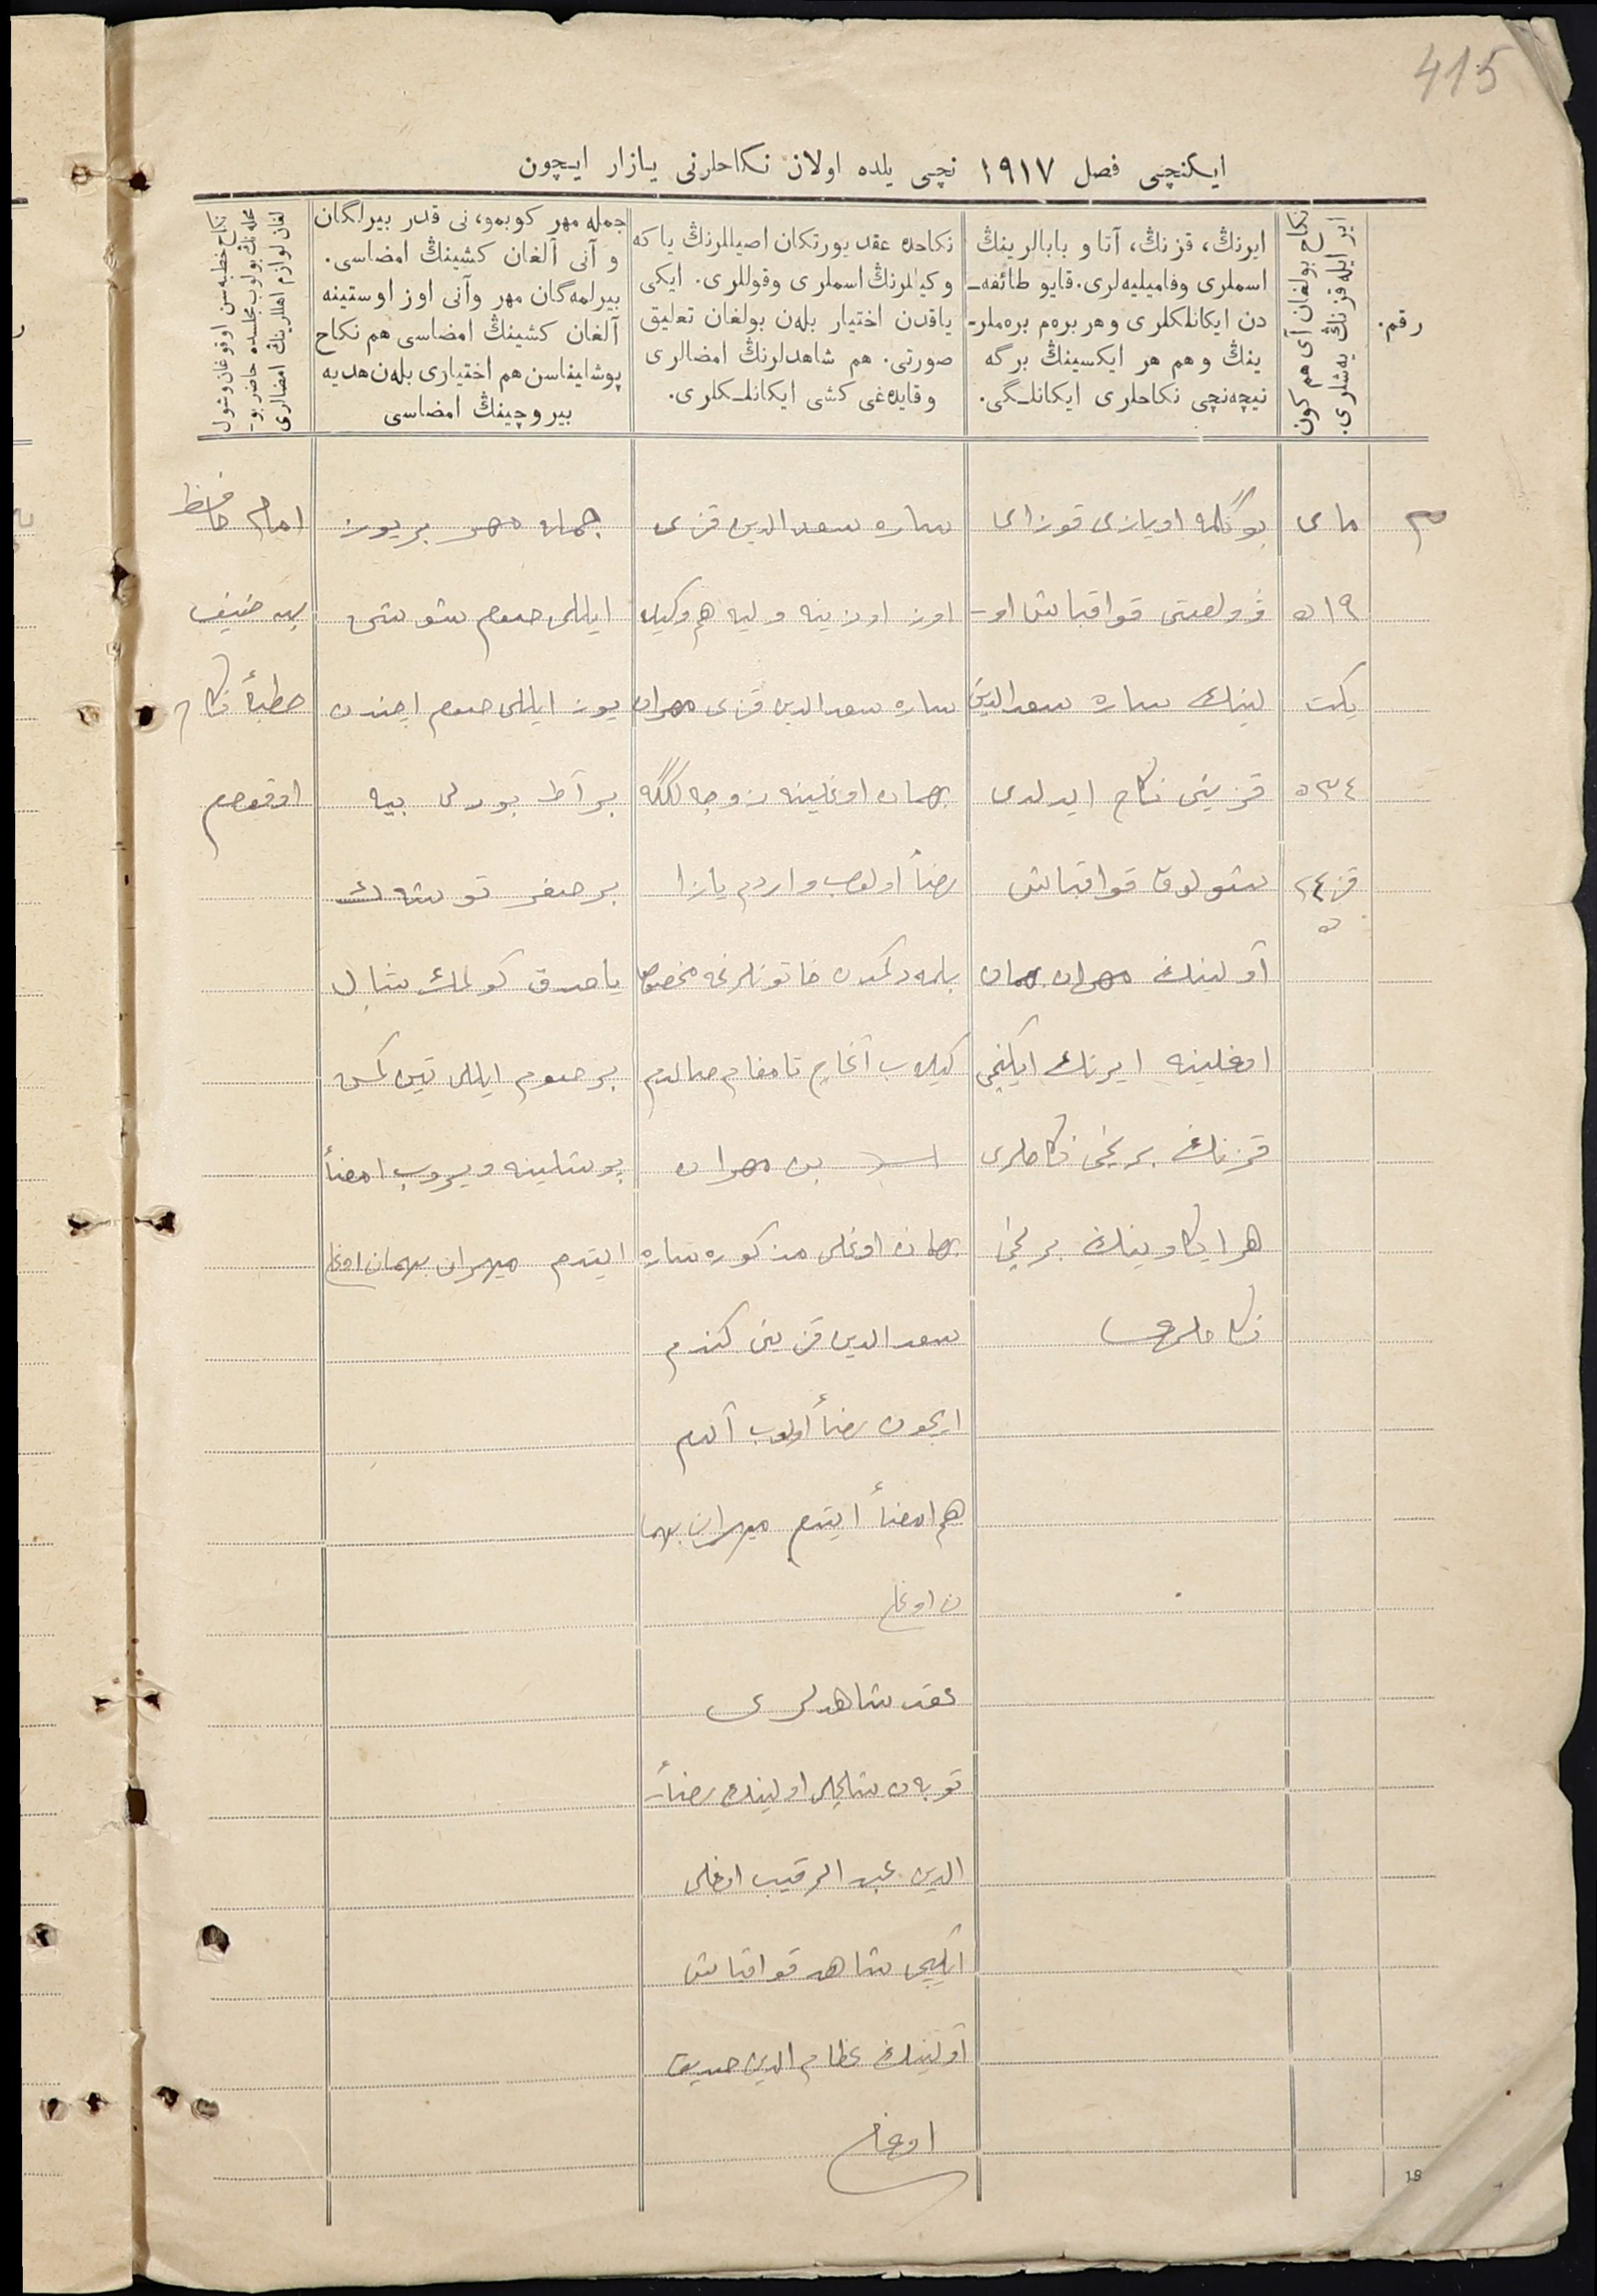 415
ایکنچی فصل ١٩١٧ نچی یلده اولان نکاحلرنی یازار ایچون
رقم.
نکاح بولغان آی هم کون
ایر ایله قزنڭ یه‌شلری.
ایرنڭ، قزنڭ، آتا و بابالرینڭ
اسملری وفامیلیه‌لری. قایو طائفه‌ـ
دن ایکانلکلری و هر بره‌م بره‌ملرـ
ینڭ و هم هر ایکسینڭ برگه
نیچه‌نچی نکاحلری ایکانلـگی.
نکاحده عقد یورتکان اصیللرنڭ یا که
وکیللرنڭ اسملری وقوللری. ایکی
یاقدن اختیار بله‌ن بولغان تعلیق
صورتی. هم شاهدلرنڭ امضالری
وقایده‌غی کشی ایکانلـکلری.
جمله مهر کوبمو، نی قدر بیرلگان
و آنی آلغان کشینڭ امضاسی.
بیرلمه‌گان مهر وآنی اوز اوستینه
آلغان کشینڭ امضاسی هم نکاح
پوشلیناسن هم اختیاری بله‌ن هدیه
بیروچینڭ امضاسی
نکاح خطبه‌سن اوقوغان وشول
محله‌نڭ بولوب مجلسده حاضر بوـ
لغان لوازم اهللرینڭ امضالری
٣
مای
١٩ ه
یکت
٣٤ ه
قز ٢٤
ه
بوگلمه اویازی قوزای
ڤولصتی قواقباش اوـ
لینك ساره سعدالدین
قزینی نکاح ایدلدی
شولوق قواقباش
آولینڭ مهران بهمان
اوغلینه ایرنڭ ایکنچی
قزنڭ برنچی نکاحلری
هر ایکاوینڭ برنچی
نکاحلری
ساره سعدالدین قزی
اوز اوزینه ولیه هم وکیله
ساره سعدالدین قزی مهران
بهمان اوغلینه زوجه لککه
رضاأ اولوب واردم یازا
بلمه‌دکمدن خاتونلرغه مخصوص
کیلاب آغاچ تامغام صالدم
بن مهران
بهمان اوغلی مذکوره ساره
سعدالدین قزینی کندم
ایچون رضاأ اولوب آلدم
هم امضاأ ایتدم میهران بهما
ن اوغلی
عقد شاهدلری
توبه‌ن شلچلی اولینڭ رضاأ
الدین عبد الرقیب اوغلی
ایکنچی شاهد قواقباش
آولینڭ عظام الدین صدیق
اوغلی
جمله مهر بریوز
ایللی صوم شوشی
یوز ایللی صوم ایچندن
بر آط بورلی بیه
بر صغر توشه‌ك
یاصدق کولمك شال
بر صوم ایللی تین لکن
پوشلینه ویروب امضاأ
ایتدم میهران بهمان اوغلی
امام حافظ
خطبهٔ نکاح
اوقودم
18